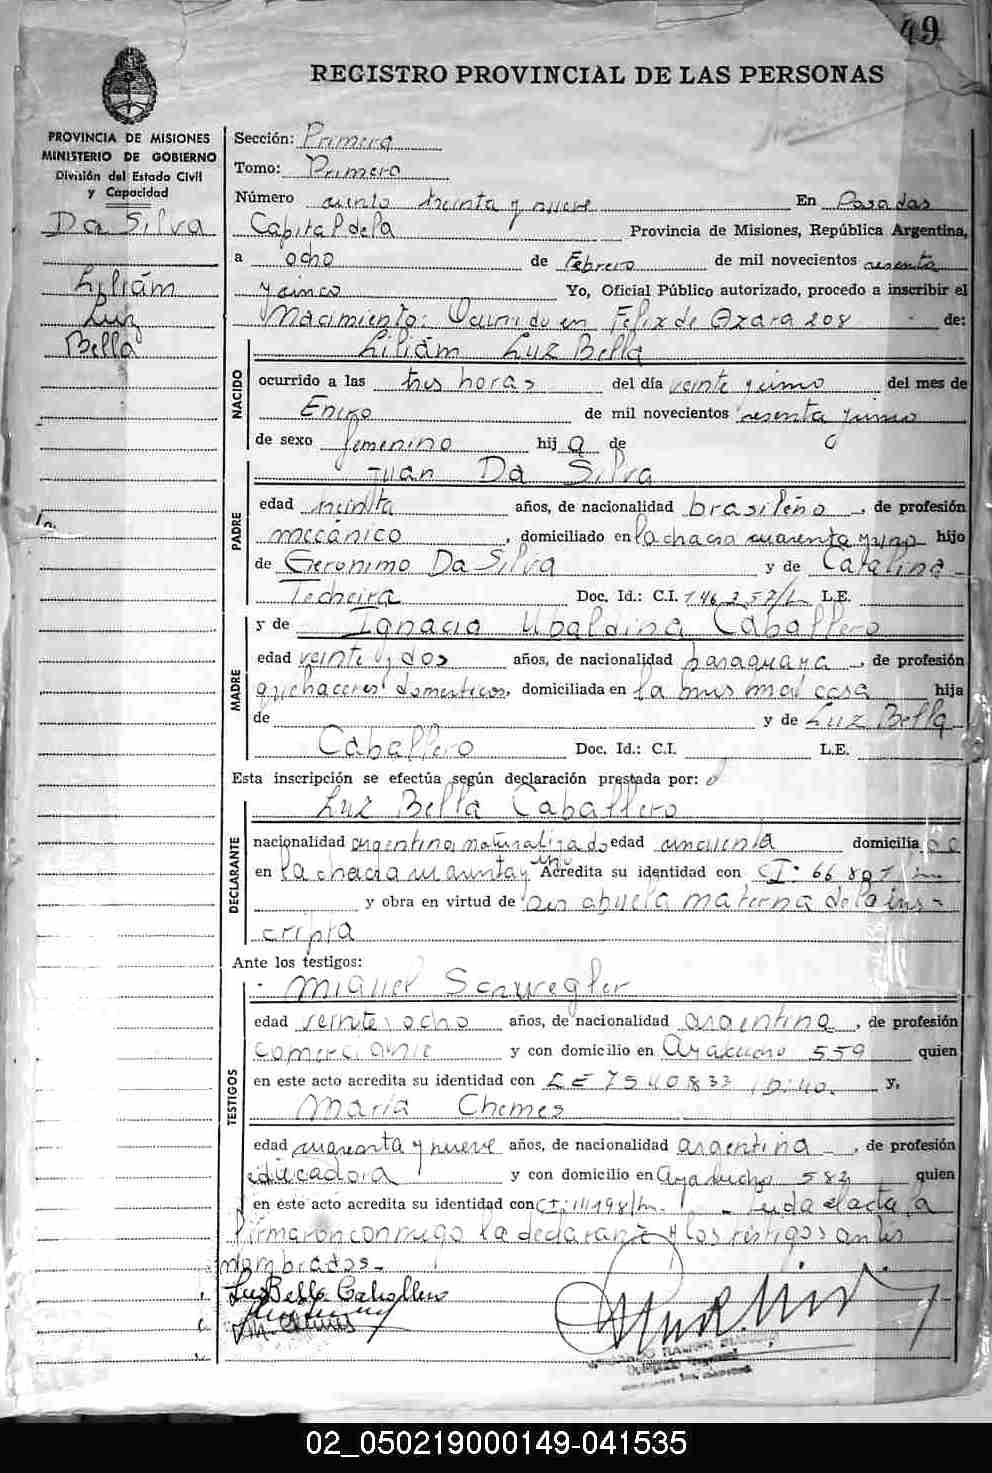 49
REGISTRO PROVINCIAL DE LAS PERSONAS
PROVINCIA DE MISIONES
MINISTERIO DE GOBIERNO
División del Estado Civil
y Capacidad
Da Silva
Liliám
Luz
Bella
Sección: Primera
Tomo: Primero
Número ciento treinta y nueve En Posadas
Capital de la Provincia de Misiones, República Argentina,
a ocho de Febrero de mil novecientos sesenta
y cinco Yo, Oficial Público autorizado, procedo a inscribir el
Nacimiento: Ocurrido en Felix de Azara 208 de:
NACIDO
Liliám Luz Bella
ocurrido a las tres horas del día veinte y uno del mes de
Enero de mil novecientos sesenta y cinco
de sexo femenino hij a de
PADRE
Juan Da Silva
edad treinta años, de nacionalidad brasileño, de profesión
mecánico, domiciliado en la chacra cuarenta y uno hijo
de Gerónimo Da Silva y de Catalina
Techeira Doc. Id.: C.I. 146.257/L L.E.
MADRE
y de Ignacia Ubaldina Caballero
edad veinte y dos años, de nacionalidad paraguaya, de profesión
quehaceres domesticos, domiciliada en la misma casa hija
de y de Luz Bella
Caballero Doc. Id.: C.I. L.E.
Esta inscripción se efectúa según declaración prestada por:
DECLARANTE
Luz Bella Caballero
nacionalidad argentina naturalizada edad cincuenta domicilia da
en la chacra cuarenta y uno Acredita su identidad con CI: 66
y obra en virtud de ser abuela materna de la ins-
cripta
Ante los testigos:
TESTIGOS
Miguel Schwegler
edad veinte y ocho años, de nacionalidad argentina, de profesión
comerciante y con domicilio en Ayacucho 559 quien
en este acto acredita su identidad con LE 7540833 D.M.40. y,
María Chemes
edad cuarenta y nueve años, de nacionalidad argentina, de profesión
educadora y con domicilio en Ayacucho 582 quien
en éste acto acredita su identidad con CI: Leida el acta la
firmaron conmigo la declarante y los testigos antes
nombrados.-
Luz Bella Caballero
M. Chemes
02_050219000149-041535